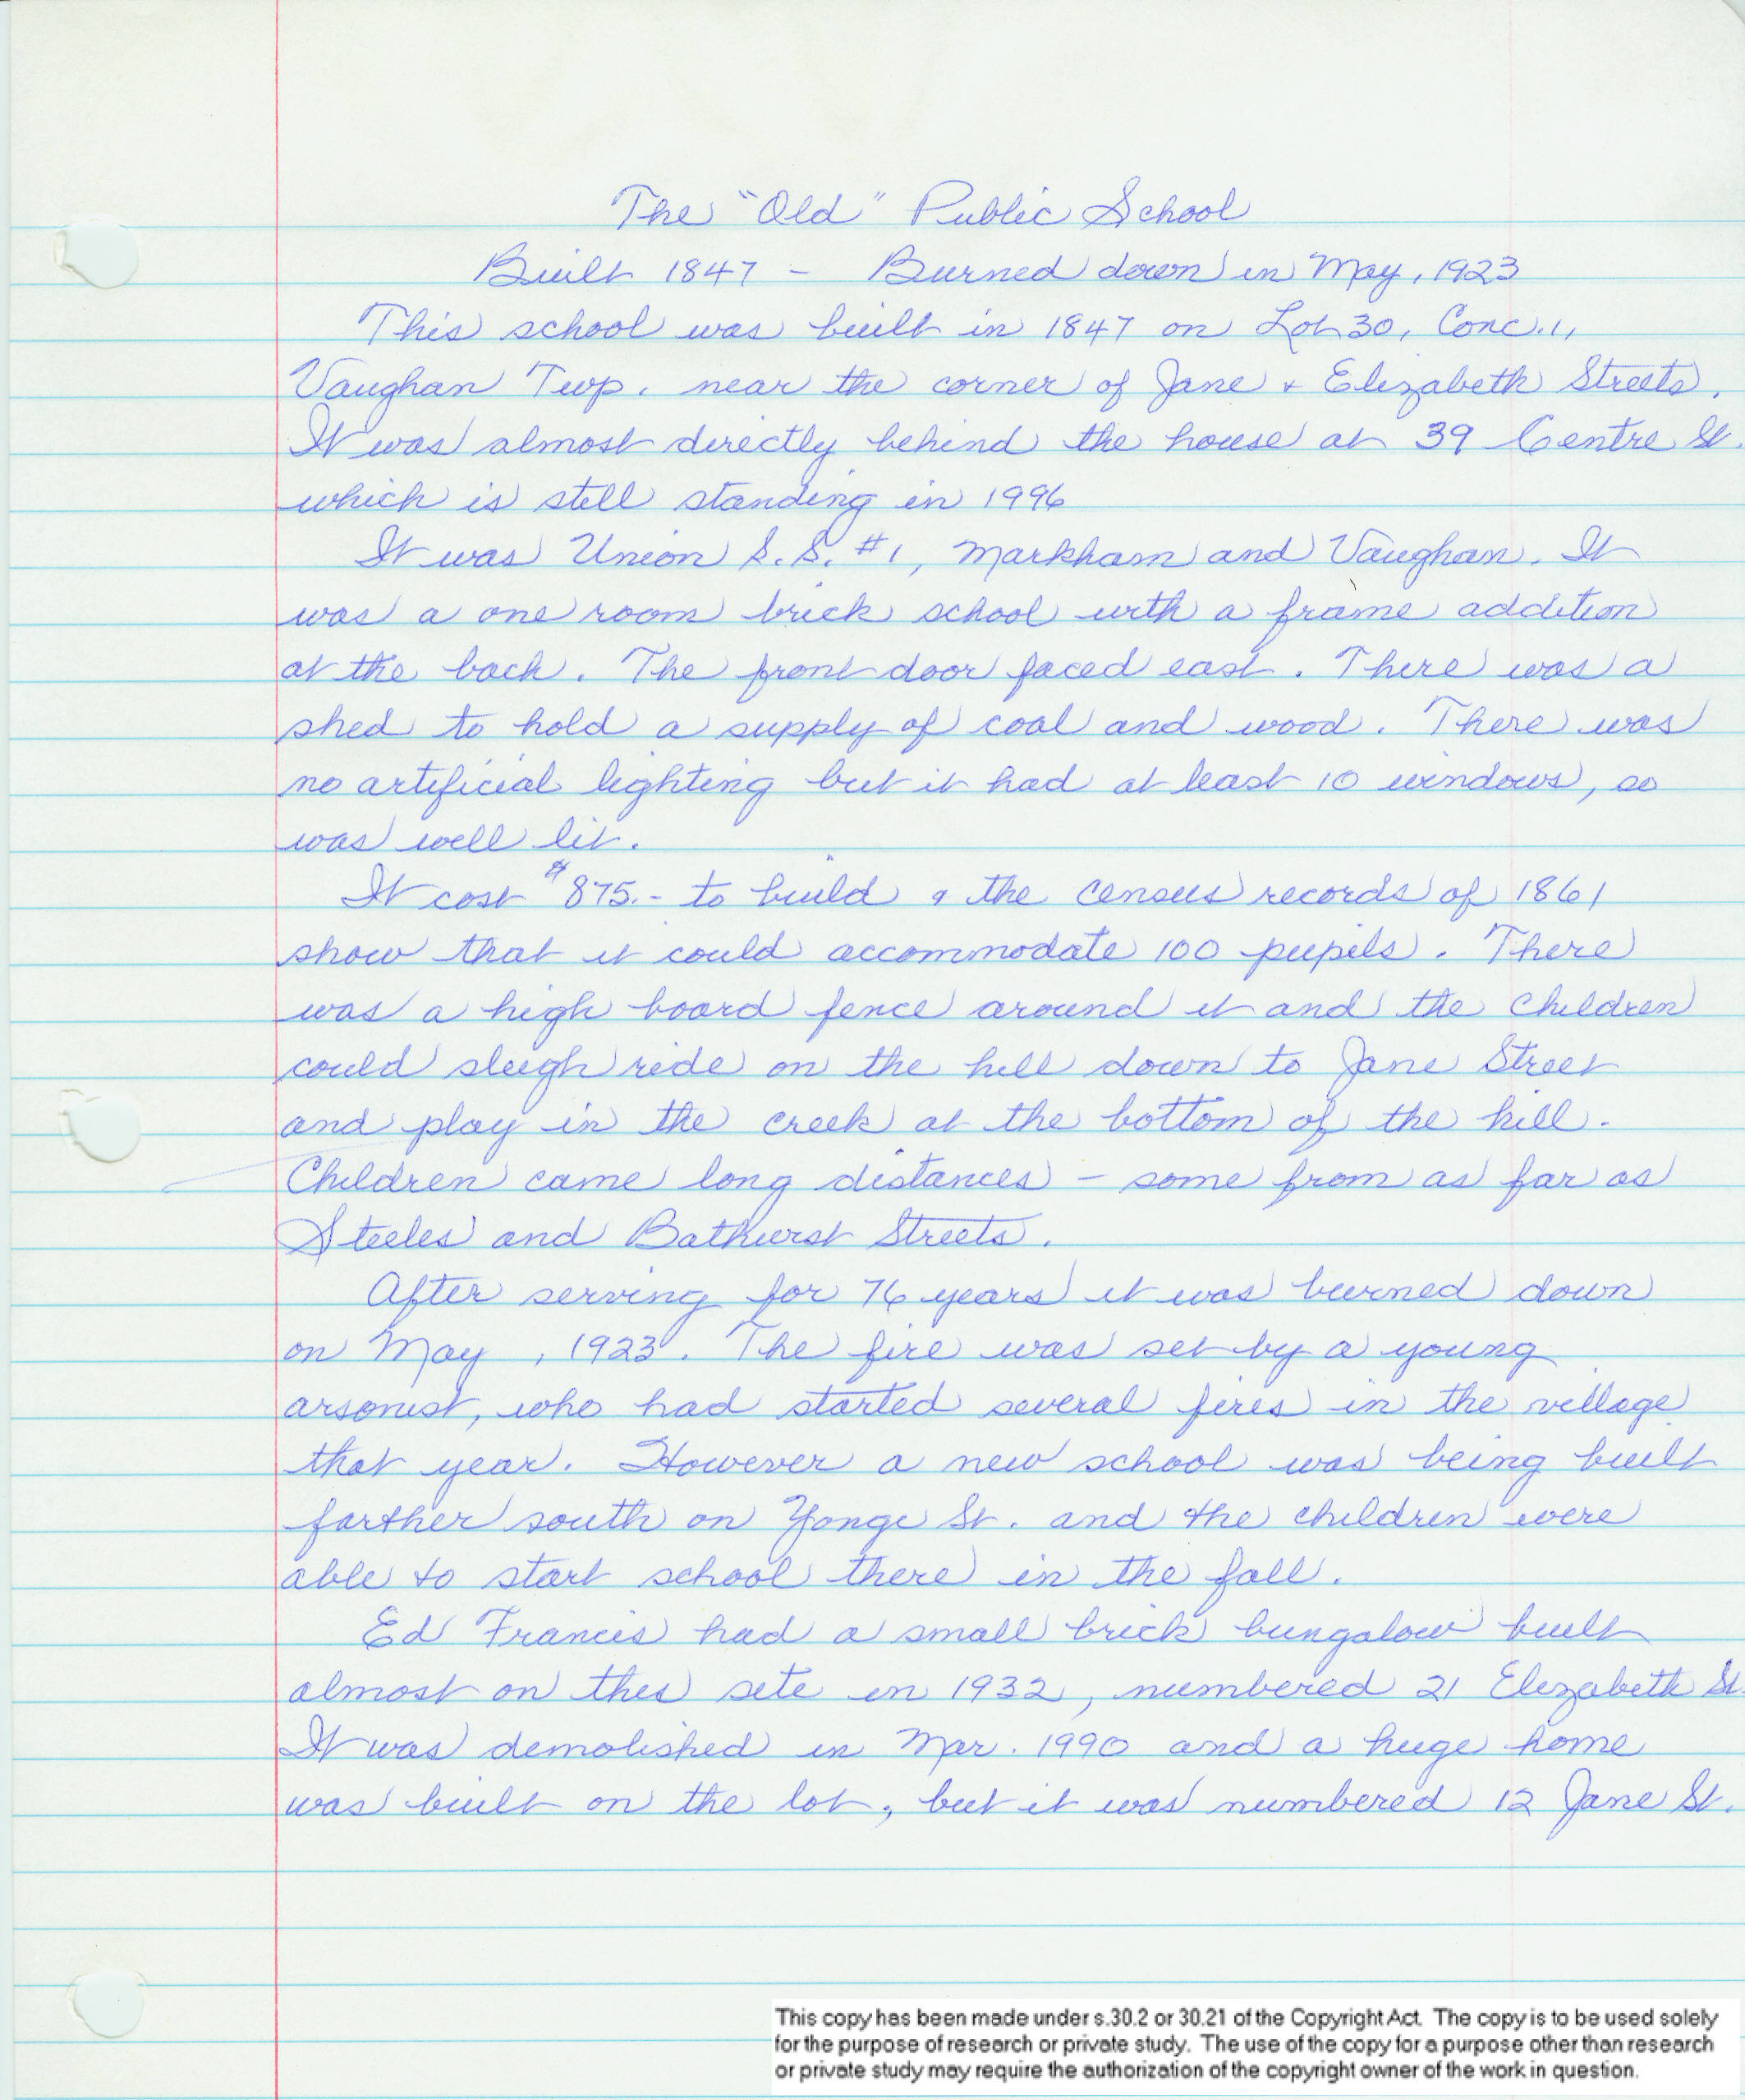 The "Old" Public School
Built 1847 - Burned down in May, 1923
This school was built in 1847 on Lot 30, Conc. 1,
Vaughan Twp. near the corner of Jane & Elizabeth Streets.
It was almost directly behind the house at 39 Centre St.
which is still standing in 1996
It was Union S.S. #1, Markham and Vaughan. It
was a one room brick school with a frame addition
at the back. The front door faced east. There was a
shed to hold a supply of coal and wood. There was
no artificial lighting but it had at least 10 windows, so
was well lit.
It cost $875.- to build & the census records of 1861
show that it could accommodate 100 pupils. There
was a high board fence around it and the children
could sleigh ride on the hill down to Jane Street
and play in the creek at the bottom of the hill.
Children came long distances - some from as far as
Steeles and Bathurst Streets.
After serving for 76 years it was burned down
on May , 1923. The fire was set by a young
arsonist, who had started several fires in the village
that year. However a new school was being built
farther south on Yonge St. and the children were
able to start school there in the fall.
Ed Francis had a small brick bungalow built
almost on this site in 1932, numbered 21 Elizabeth St.
It was demolished in Mar. 1990 and a huge home
was built on the lot, but it was numbered 12 Jane St.
This copy has been made under s.30.2 or 30.21 of the Copyright Act. The copy is to be used solely
for the purpose of research or private study. The use of the copy for a purpose other than research
or private study may require the authorization of the copyright owner of the work in question.